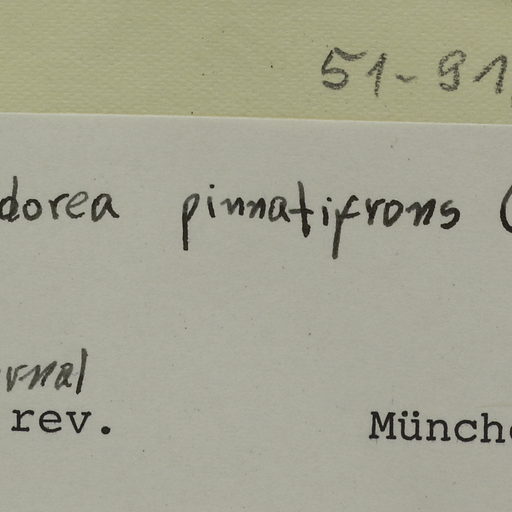 51-91
dorea pinnatifrons (
rnal
rev. Münch